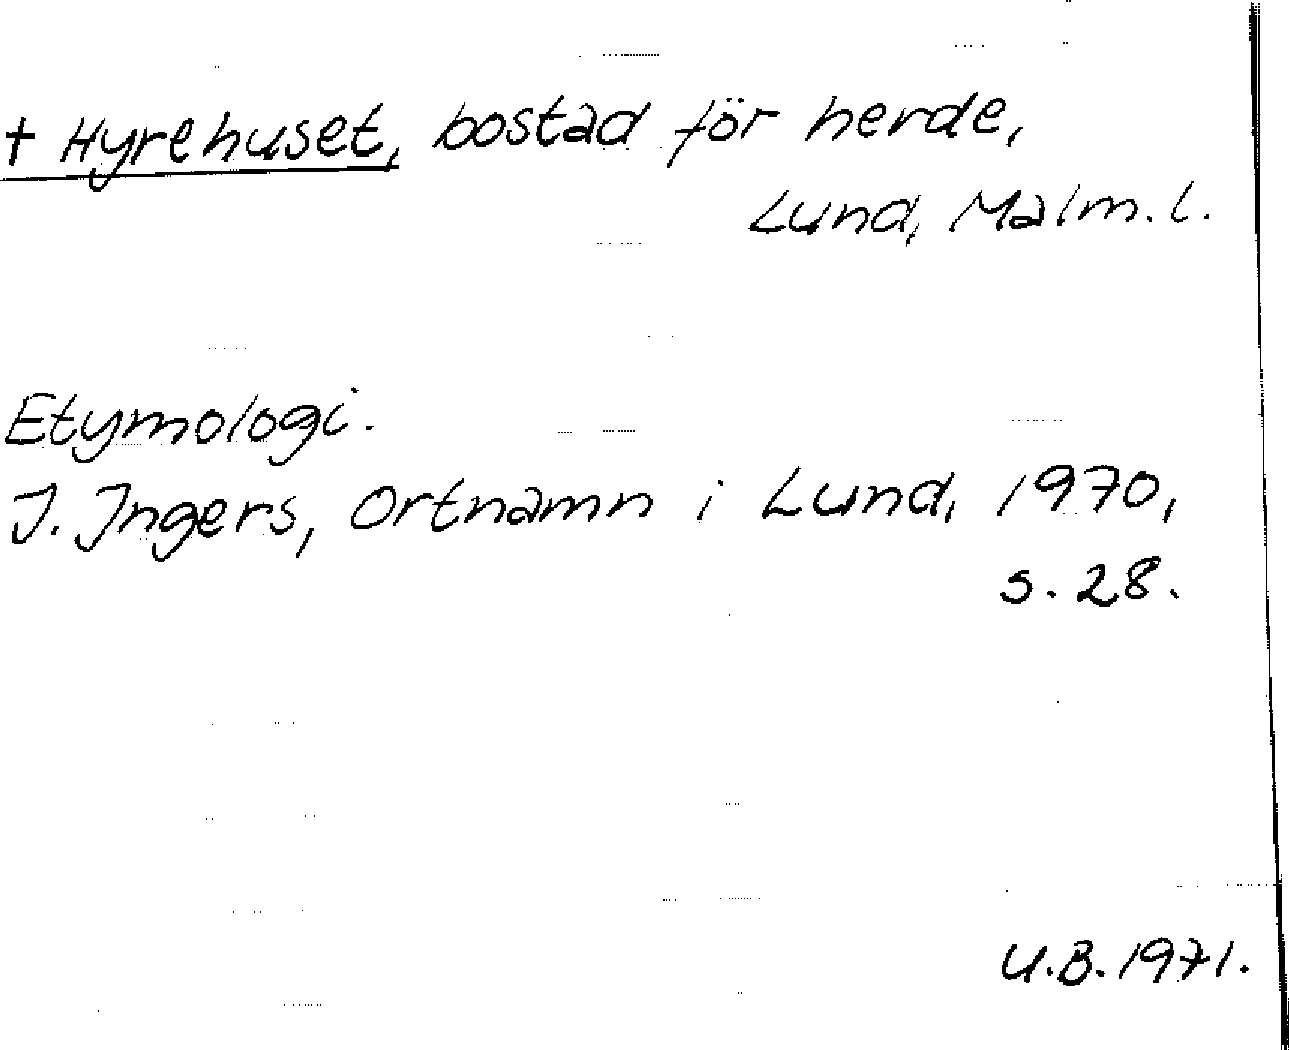 + Hyrehuset, bostad för herde,
Lund, Malm. l.
Etymologi.
I. Ingers, Ortnamn i Lund, 1970,
s. 28.
U.B. 1971.